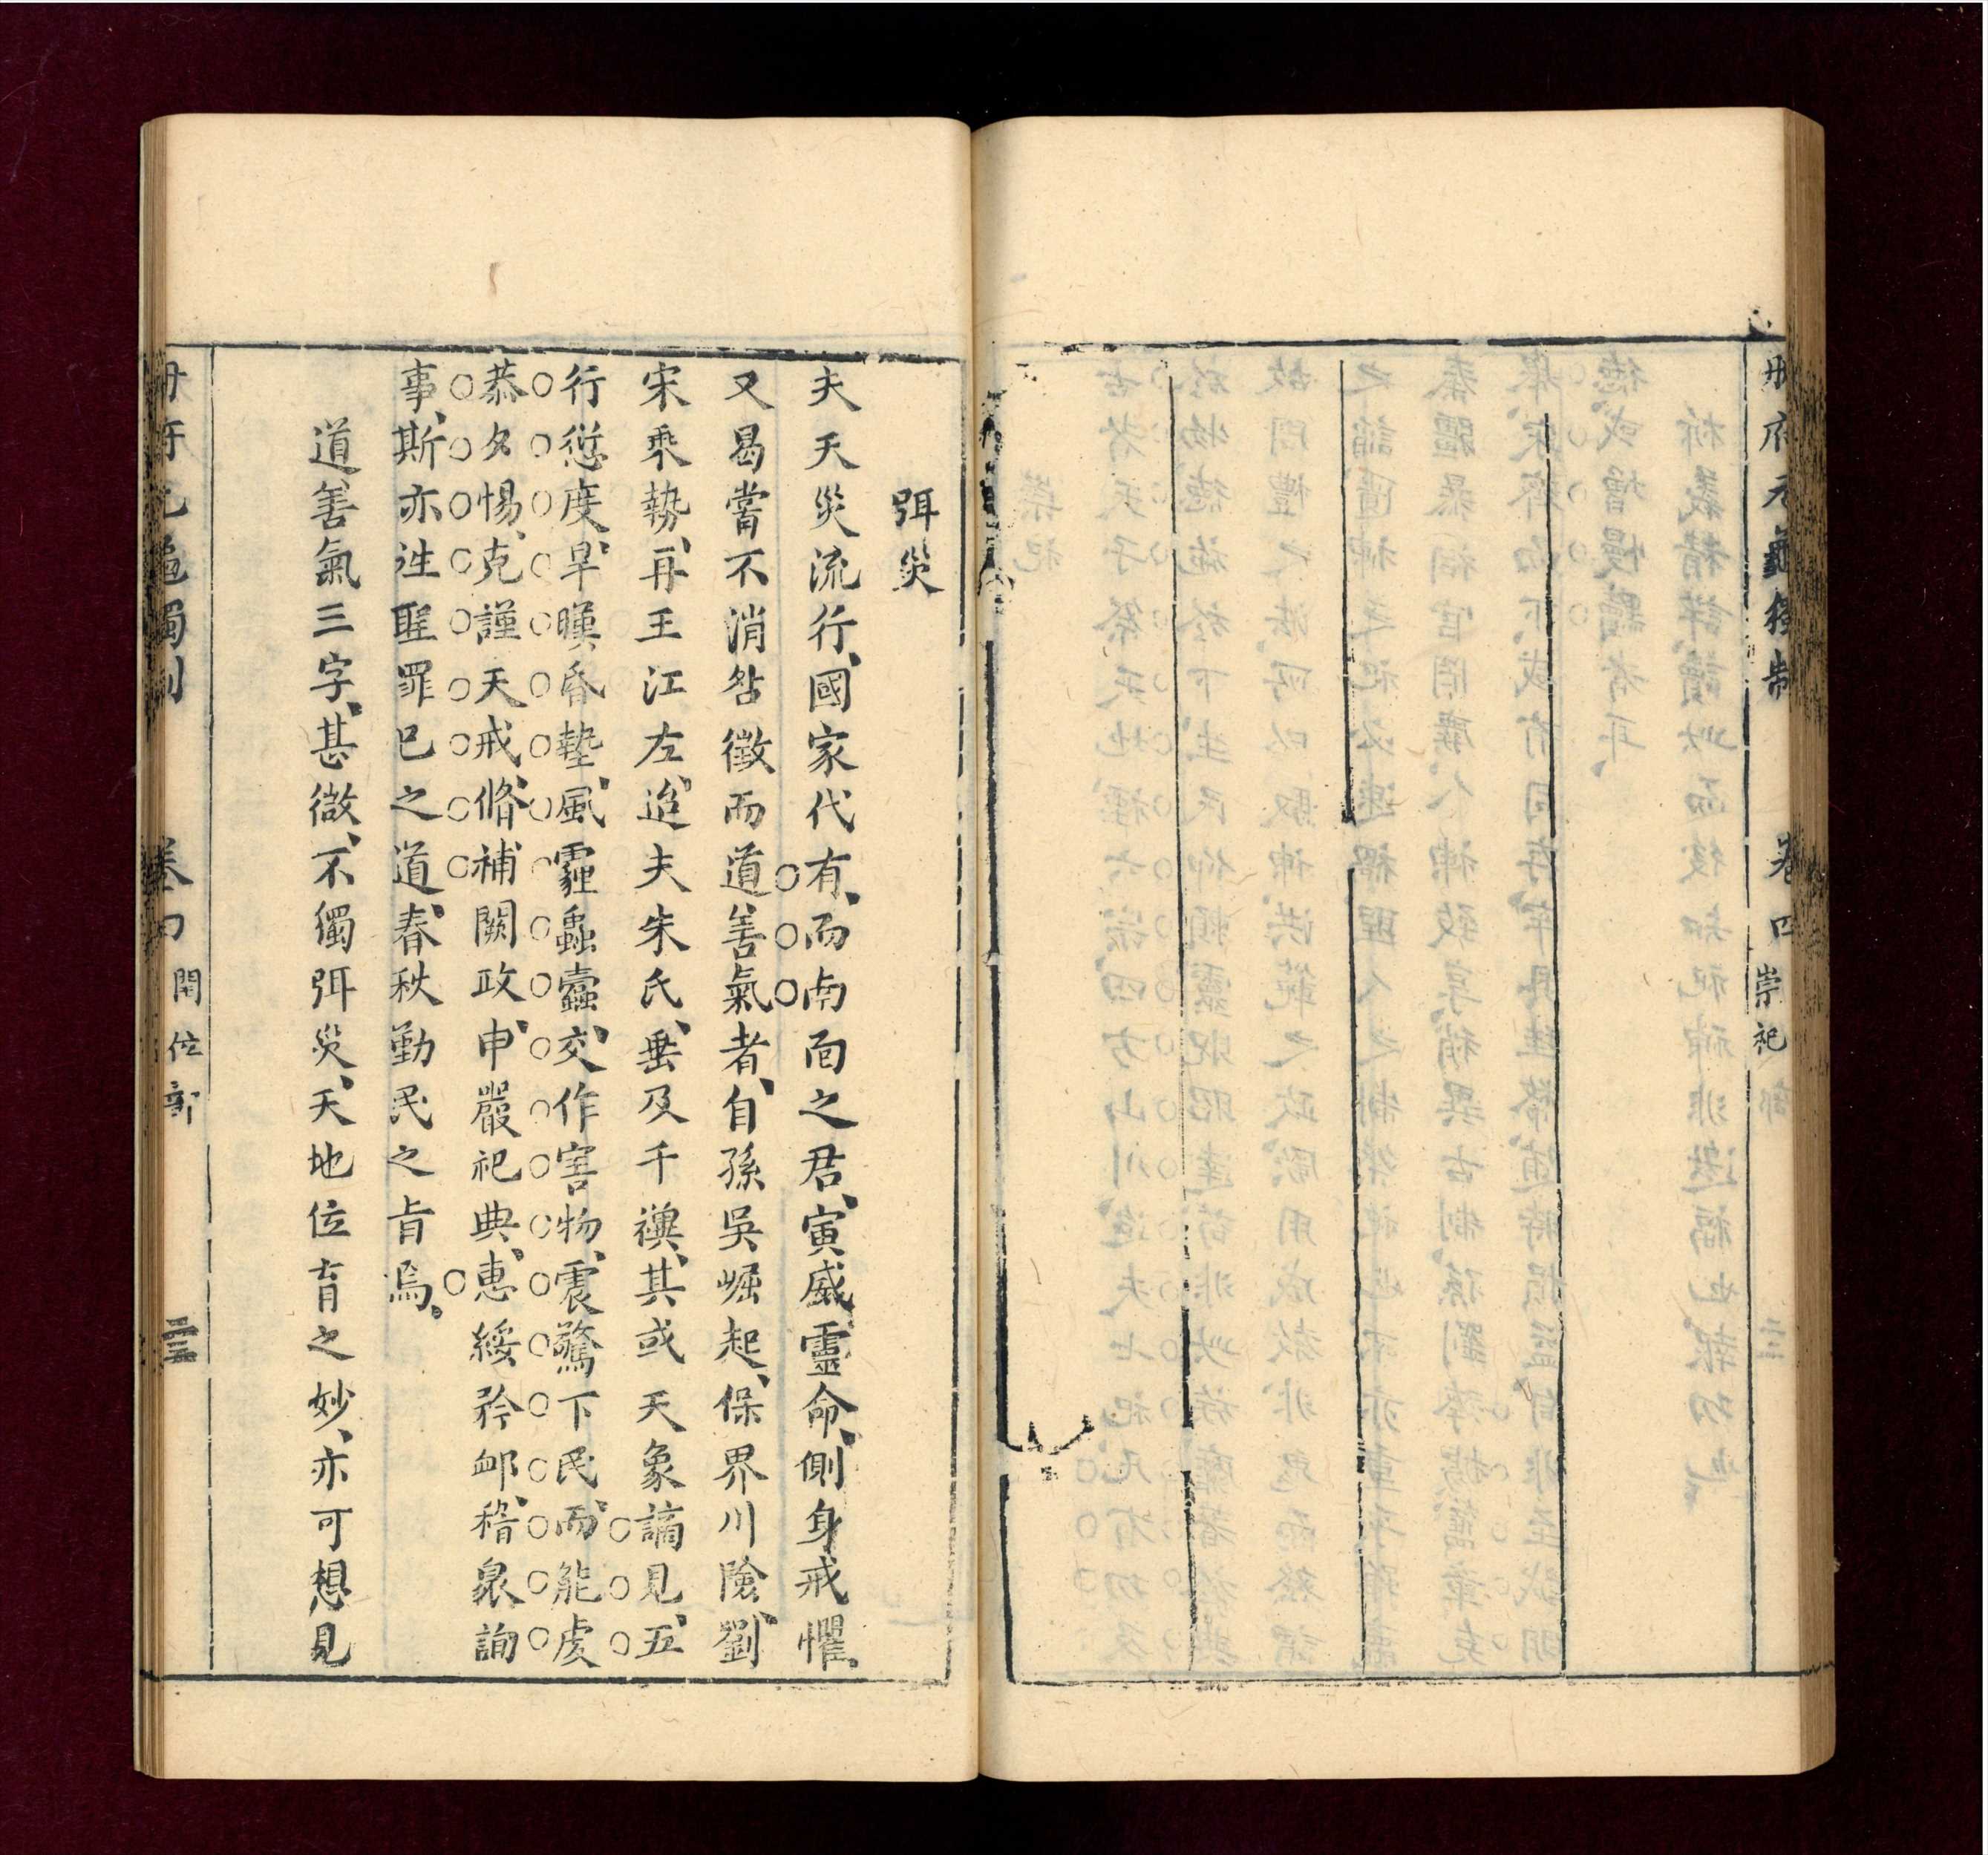 册府元龜獨制 卷四 崇祀 部
弭災
夫天災流行、國家代有、而南面之君、寅威靈命、側身戒懼、
又曷嘗不消咎徵而道善氣者、自孫吳崛起、保界川險、劉
宋乘勢、再王江左、迨夫朱氏、垂及千禩、其或天象謫見、五
行愆度、旱暵昏墊、風霾螽蠹、交作害物、震驚下民、而能虔
恭夕惕、克謹天戒、脩補闕政、申嚴祀典、惠綏矜䘏、稽衆詢
事、斯亦往聖罪己之道、春秋勤民之旨焉。
道善氣三字、甚微、不獨弭災、天地位育之妙、亦可想見
册府元龜獨制 卷四 閏位部 二三